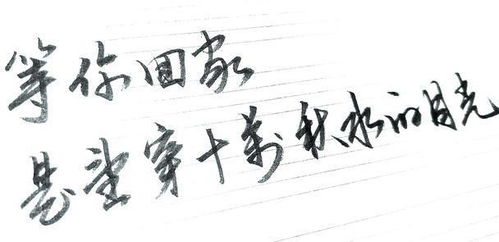 等你回家
是望穿十万秋水的目光